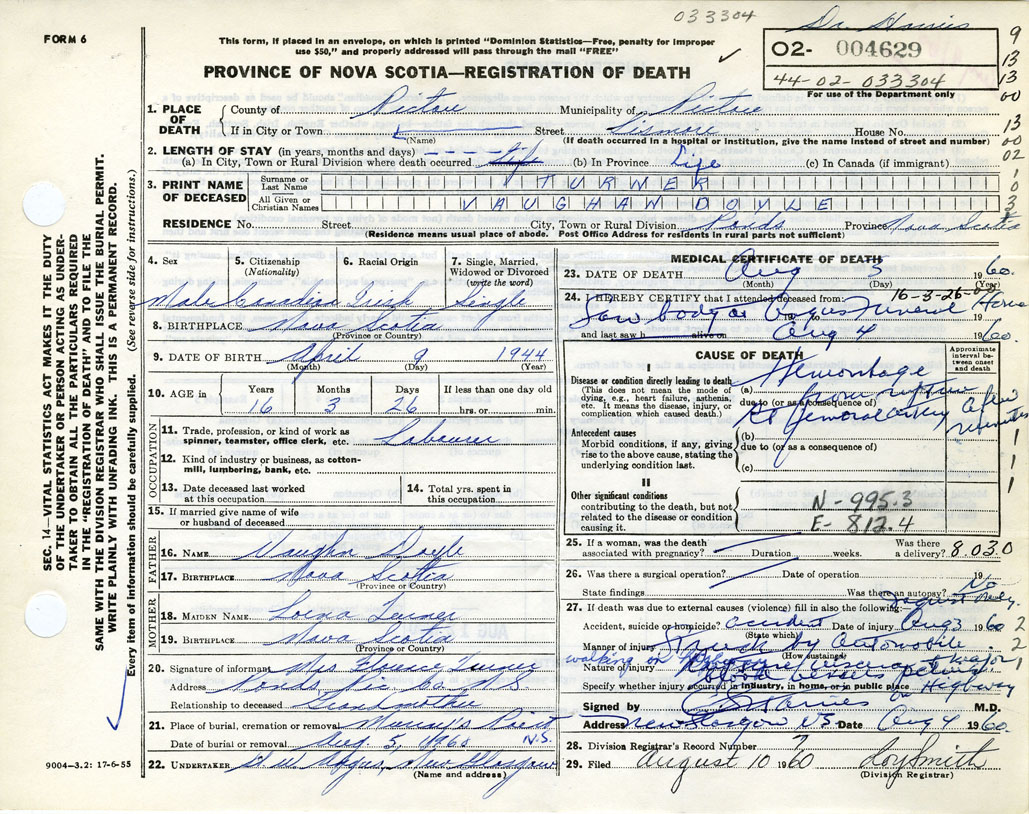 033304
Dr Harris
FORM 6
This form, if placed in an envelope, on which is printed "Dominion Statistics—Free, penalty for improper
use $50," and properly addressed will pass through the mail "FREE"
02- 004629
44-02-033304
For use of the Department only
PROVINCE OF NOVA SCOTIA—REGISTRATION OF DEATH
9
13
13
00
13
00
02
1
0
3
0
SEC. 14—VITAL STATISTICS ACT MAKES IT THE DUTY
OF THE UNDERTAKER OR PERSON ACTING AS UNDER-
TAKER TO OBTAIN ALL THE PARTICULARS REQUIRED
IN THE "REGISTRATION OF DEATH" AND TO FILE THE
SAME WITH THE DIVISION REGISTRAR WHO SHALL ISSUE THE BURIAL PERMIT.
WRITE PLAINLY WITH UNFADING INK. THIS IS A PERMANENT RECORD.
Every item of information should be carefully supplied. (See reverse side for instructions.)
1. PLACE OF DEATH County of Pictou Municipality of Pictou
If in City or Town (Name) Street Lismore House No.
(If death occurred in a hospital or Institution, give the name instead of street and number)
2. LENGTH OF STAY (in years, months and days)
(a) In City, Town or Rural Division where death occurred Life (b) In Province Life (c) In Canada (if immigrant)
3. PRINT NAME OF DECEASED Surname or Last Name TURNER
All Given or Christian Names VAUGHAN DOYLE
RESIDENCE No. Street City, Town or Rural Division Ponds Province Nova Scotia
(Residence means usual place of abode. Post Office Address for residents in rural parts not sufficient)
4. Sex 5. Citizenship (Nationality) 6. Racial Origin 7. Single, Married, Widowed or Divorced (write the word)
Male Canadian Irish Single
8. BIRTHPLACE Nova Scotia
(Province or Country)
9. DATE OF BIRTH April 9 1944
(Month) (Day) (Year)
10. AGE in Years Months Days If less than one day old
16 3 26 hrs. or min.
OCCUPATION
11. Trade, profession, or kind of work as
spinner, teamster, office clerk, etc. Labourer
12. Kind of industry or business, as cotton-
mill, lumbering, bank, etc.
13. Date deceased last worked at this occupation 14. Total yrs. spent in this occupation
15. If married give name of wife
or husband of deceased
FATHER
16. NAME Vaughn Doyle
17. BIRTHPLACE Nova Scotia
(Province or Country)
MOTHER
18. MAIDEN NAME Lorna Turner
19. BIRTHPLACE Nova Scotia
(Province or Country)
20. Signature of informant Mrs Florence Turner
Address Ponds Pic Co. N.S
Relationship to deceased Grandmother
21. Place of burial, cremation or removal Murray's Point N.S.
Date of burial or removal Aug. 5, 1960
22. UNDERTAKER New Glasgow
(Name and address)
9004—3.2: 17-6-55
MEDICAL CERTIFICATE OF DEATH
23. DATE OF DEATH Aug 5 1960.
(Month) (Day) (Year)
24. I HEREBY CERTIFY that I attended deceased from: 16-3-26
Saw body at Angus Funeral Home
and last saw h alive on Aug 4 1960.
CAUSE OF DEATH
Approximate interval between onset and death
I
Disease or condition directly leading to death
(This does not mean the mode of
dying, e.g., heart failure, asthenia,
etc. It means the disease, injury, or
complication which caused death.)
(a) Hemorrhage
due to (or as a consequence of)
from rupture
Rt femoral artery a few minutes
Antecedent causes
Morbid conditions, if any, giving
rise to the above cause, stating the
underlying condition last.
(b)
due to (or as a consequence of)
(c)
II
Other significant conditions
contributing to the death, but not
related to the disease or condition
causing it.
N-995.3
E-812.4
25. If a woman, was the death associated with pregnancy? Duration weeks. Was there a delivery? 8.03.0
26. Was there a surgical operation? Date of operation 19
State findings Was there an autopsy? No
27. If death was due to external causes (violence) fill in also the following:
Accident, suicide or homicide? accident Date of injury Aug 3 1960
(State which)
Manner of injury Struck by automobile
(How sustained)
walking on
Nature of injury major
blood vessels pelvis
Specify whether injury occurred in industry, in home, or in public place on Highway
Signed by Harries M.D.
Address New Glasgow N.S. Date Aug 4 1960.
28. Division Registrar's Record Number 7
29. Filed August 10 1960 Smith
(Division Registrar)